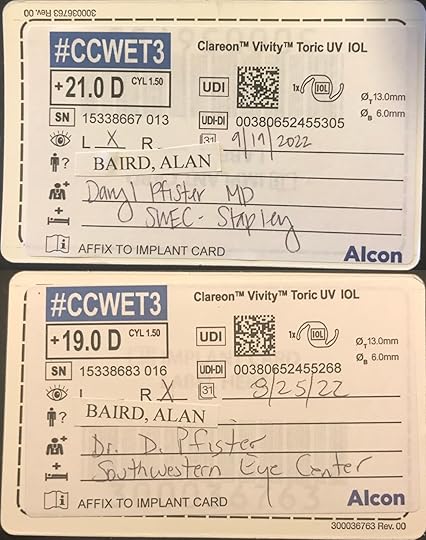 300036763 Rev. 00
#CCWET3 Clareon™ Vivity™ Toric UV IOL
+21.0 D CYL 1.50 UDI 1x IOL ØT 13.0mm
ØB 6.0mm
SN 15338667 013 UDI-DI 00380652455305
L X R 31 9/19/2022
? BAIRD, ALAN
Daryl Pfister MD
SWEC - Stapley
i AFFIX TO IMPLANT CARD Alcon
#CCWET3 Clareon™ Vivity™ Toric UV IOL
+19.0 D CYL 1.50 UDI 1x IOL ØT 13.0mm
ØB 6.0mm
SN 15338683 016 UDI-DI 00380652455268
L R X 31 8/25/22
? BAIRD, ALAN
Dr. D. Pfister
Southwestern Eye Center
i AFFIX TO IMPLANT CARD Alcon
300036763 Rev. 00